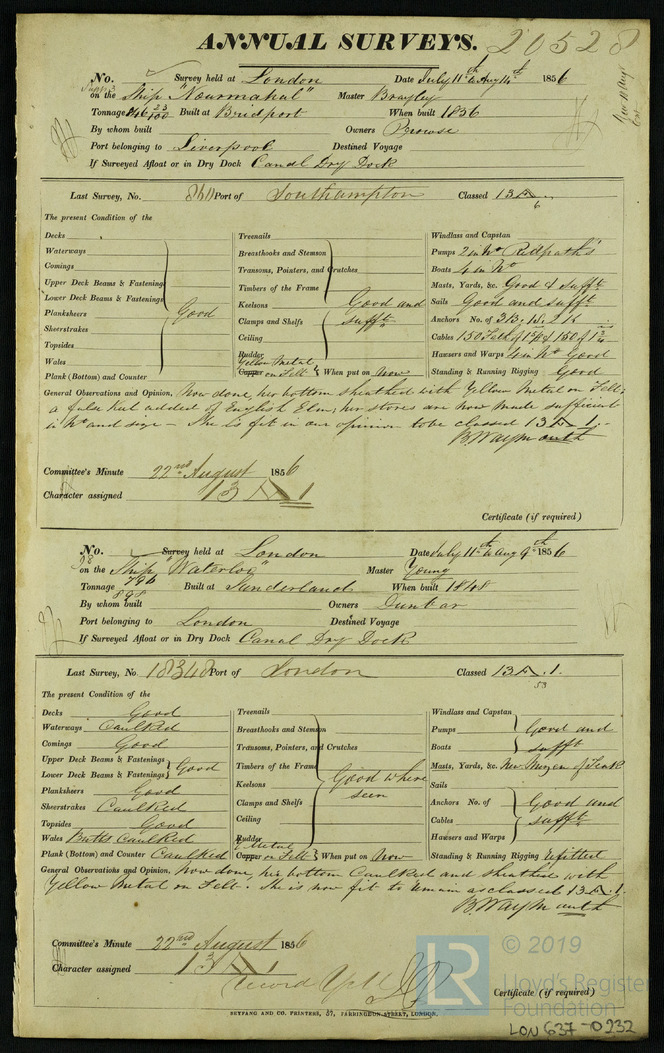 ANNUAL SURVEYS. 20528
No. Survey held at London Date July 11th to Aug 14th 1856
on the Ship "Nourmahal" Master Brayley
Tonnage 846 23/100 Built at Bridport When built 1836
By whom built Owners Browse
Port belonging to Liverpool Destined Voyage
If Surveyed Afloat or in Dry Dock Canal Dry Dock
Last Survey, No. 860 Port of Southampton Classed 13A
6
The present Condition of the
Decks Treenails Windlass and Capstan
Waterways Breasthooks and Stemson Pumps 2 in No Redpath's
Comings Transoms, Pointers, and Crutches Boats 4 in No
Upper Deck Beams & Fastenings Timbers of the Frame Masts, Yards, &c. Good & Sufft
Lower Deck Beams & Fastenings Keelsons Good and Sails Good and sufft
Plansheers Good Clamps and Shelfs sufft Anchors No. of 3B, 1S, 2K
Sheerstrakes Ceiling Cables
Topsides Rudder Hawsers and Warps 4 in No Good
Wales Yellow Metal
Plank (Bottom) and Counter Copper on Felt When put on Now Standing & Running Rigging Good
General Observations and Opinion, Now done, her bottom sheathed with Yellow Metal on Felt;
a false Keel added of English Elm; her stores are now made sufficient
in No and size – She is fit in our opinion to be classed 13 A 1.
B. Waymouth
Committee's Minute 22nd August 1856
Character assigned 13 A 1
Certificate (if required)
No. Survey held at London Date July 11th to Aug 9th 1856
28 on the Ship "Waterloo" Master Young
Tonnage 796 Built at Sunderland When built 1848
898
By whom built Owners Dunbar
Port belonging to London Destined Voyage
If Surveyed Afloat or in Dry Dock Canal Dry Dock
Last Survey, No. 18348 Port of London Classed 13A.1.
53
The present Condition of the
Decks Good Treenails Windlass and Capstan
Waterways Caulked Breasthooks and Stemson Pumps Good and
Comings Good Transoms, Pointers, and Crutches Boats sufft
Upper Deck Beams & Fastenings Good Timbers of the Frame Masts, Yards, &c. New Mizen of Teak
Lower Deck Beams & Fastenings Keelsons Good where seen Sails
Plansheers Good Clamps and Shelfs Anchors No. of Good and
Sheerstrakes Caulked Ceiling Cables sufft
Topsides Good Rudder Hawsers and Warps
Wales Butts Caulked Y Metal
Plank (Bottom) and Counter Caulked Copper on Felt When put on Now Standing & Running Rigging Refitted
General Observations and Opinion, Now done, her bottom Caulked and sheathed with
Yellow Metal on Felt. She is now fit to remain as classed 13A.1.
B. Waymouth
Committee's Minute 22nd August 1856
Character assigned 13 A 1
© 2019
LR Lloyd's Register
Foundation
Certificate (if required)
SEYFANG AND CO. PRINTERS, 57, FARRINGDON STREET, LONDON.
LON 637-0232